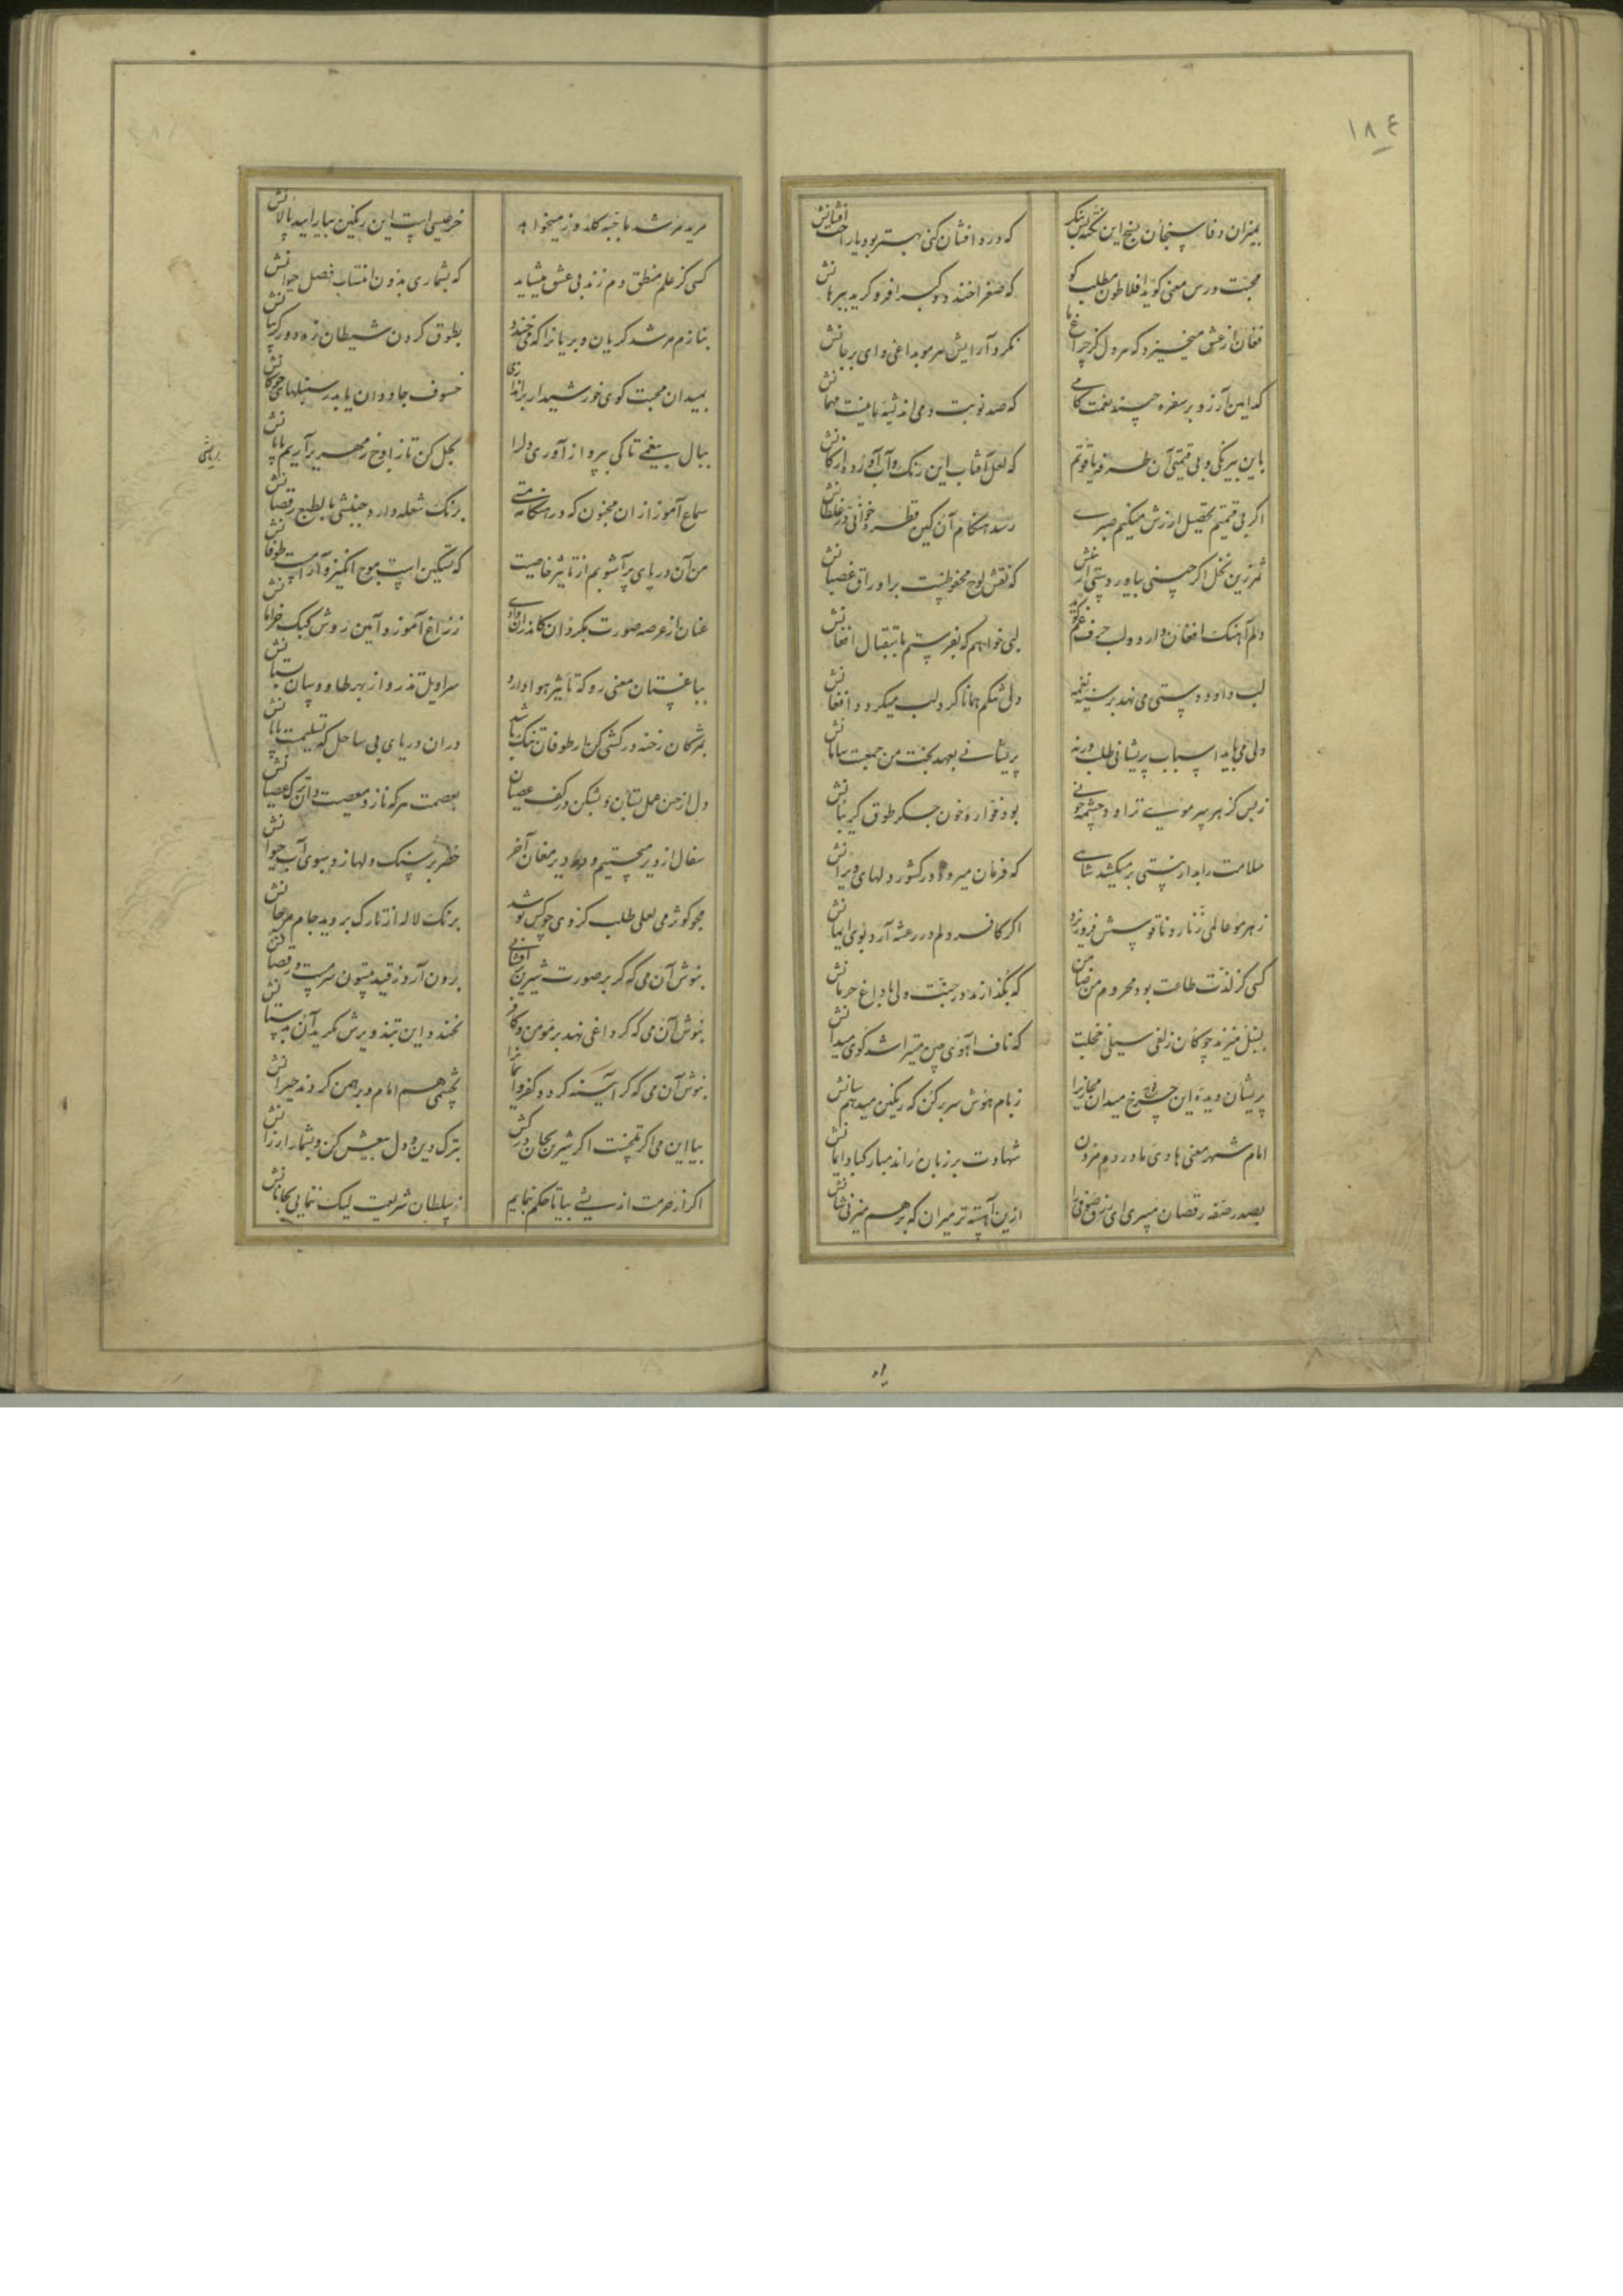 ۱۸٤
بمیزان وفا سنجان بسنج این نکته بنگر
که درد افشان کنی بهتر بود یا راحت افشانش
محبت درس معنی گوید افلاطون مطلب کو
که صغرا خندد و کبرا فرو گرید ببرهانش
فغان از عشق میخیزد که هر دل کز چراغ ما
نکرد آرایش هر مو بداغی وای بر جانش
کدامین آرزو بر سفره چیند نعمت کامی
که صد نوبت دمی اندیشهٔ ما نیست مهمانش
باین بیرنگی و بی قیمتی آن طرفه یاقوتم
که لعل آفتاب این رنگ و آب آورده از کانش
اگر بی قیمتم تحصیل ارزش میکنم صبری
رسد هنگام آن کین قطره خوانی در غلطانش
ثمر زین نخل اگر چینی بیاور دستی از عشق
که نقش لوح محفوظست بر اوراق غصانش
دلم آهنگ افغان دارد و لب حرف غم گوید
لبی خواهم که بفرستم باستقبال افغانش
لب داود دستی می نهد بر سینهٔ نغمه
ولی شکم همانا گرد لب میگردد افغانش
ولی می باید اسباب پریشانی طلب ورنه
پریشانی بعهد بخت من جمعست سامانش
ز بس کز هر سر مویی تراود چشمه خونی
بود فوارهٔ خون جگر طوق گریبانش
ملامت را بدارستی بر میکشد شاهی
که فرمان میرود در کشور دلهای ویرانش
ز هر مو عالمی زنار و ناقوسش فروریزد
اگر کافر دلم در رعشه آرد بوی ایمانش
کسی کز لذت طاعت بود محروم من ضامن
که بگذارند در جنت ولی با داغ حرمانش
بسنبل میزند چوگان زلفی سیلی خجلت
که ناف آهوی چین میتراشد گوی میدانش
پریشان دیده این چرخ میدان مجازی را
زبام هوش سر بر کن که رنگین میدهم سانش
امام شهر معنی هادی ما در دم مردن
شهادت بر زبان راند مبارکباد ایمانش
بصد رقصه رقصان میبری ای برق صوفی را
ازین آهسته تر میران که بر هم میزنی شانش
مرید مرشد ما جبه گلدوز میخواهد
خر عیسی است این رنگین بیارایید پالانش
کسی کز علم منطق دم زند بی عشق میشاید
که بشماری بدون انتساب فصل حیوانش
بنازم مرشد گریان و بریان را که می خندد
بطوق گردن شیطان زه دور گریبانش
بمیدان محبت گوی خورشید ار براندازی
خسوف جاودان یابد ز سنبلهای چوگانش
ببال بیغمی تا کی بپرواز آوری دل را
بجل کن تا ز اوج زمهریر آریم پایانش
سماع آموز ازان مجنون که در هنگامه مستی
برنگ شعله دارد جنبشی بالطبع رقصانش
من آن دریای پر آشوبم از تاثیر خاصیت
که تسکین است موج انگیز و آرام است طوفانش
عنان از عرصه صورت بگردان کاندران وادی
ز زاغ آموزد آیین روش کبک خرامانش
بباغستان معنی رو که تاثیر هوا دارد
سراویل تذرو از بهر طاووسان بستانش
بمژگان رخنه در کشتی کن ار طوفان تنک باشد
دران دریای بی ساحل که تسلیمست پایانش
دل از حسن عمل بستان و بشکن در کف عصیان
بعصمت هر که نازد معصیت دان ترک عصیانش
سفال از دیر میجستیم و داد دیر مغان آخر
خضر بر سنگ دلها زد سبوی آب حیوانش
مجو کوثر می لعلی طلب کز وی چو کس نوشد
برنگ لاله از تارک بروید جام مرجانش
بنوش آن می که گر بر صورت شیرین افشانی
برون آرد ز قید بیستون سرمست و رقصانش
بنوش آن می که گر داغی نهد بر مومن و کافر
نخندد این بتزویرش نگرید آن بدستانش
بنوش آن می که گر آیینه گردد کفر و ایمان را
بچشمی هم امام و برهمن گردند حیرانش
بیا این می اگر تلخست اگر شیرین بجان درکش
بترک دین و دل بیعش کن و بشمار ارزانش
اگر از حرمت اندیشی بیا تا حکم بنمایم
ز سلطان شریعت لیک ننمایی بخاصانش